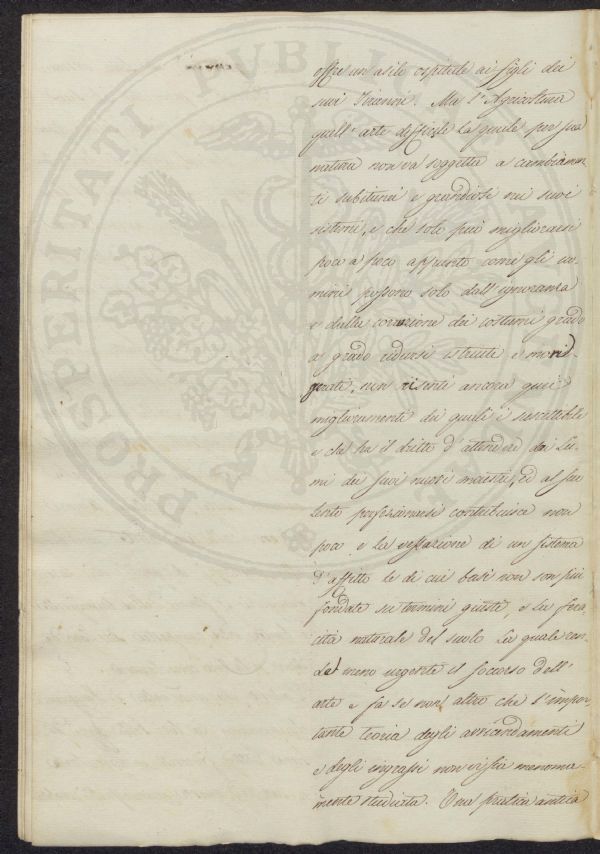 PROSPERITATI PVBLIC
offre un asile ospitale ai figli dei
suoi Tiranni. Ma l'Agricoltura
quell'arte difficile la quale per sua
natura non va soggetta a cambiamen-
ti subitanei e grandiosi nei suoi
sistemi, e che solo può migliorarsi
poco a poco appunto come gli uo-
mini possono solo dall'ignoranza
e dalla corruzione dei costumi grado
a grado ridursi istruiti e morig-
gerati, non risentì ancora quei
miglioramenti dei quali è suscettibile
e che ha il dritto d'attendere dai Lu-
mi dei suoi nuovi maestri, ed al suo
lento perfezionarsi contribuisce non
poco e la vessazione di un sistema
d'affitto le di cui basi non son più
fondate su termini giusti, e la fera-
cità naturale del suolo la quale ren-
de meno urgente il soccorso dell'
arte e fa se non altro che l'impor-
tante teoria degli avvicendamenti
e degli ingrassi non vi sia menoma-
mente studiata. Una pratica antica